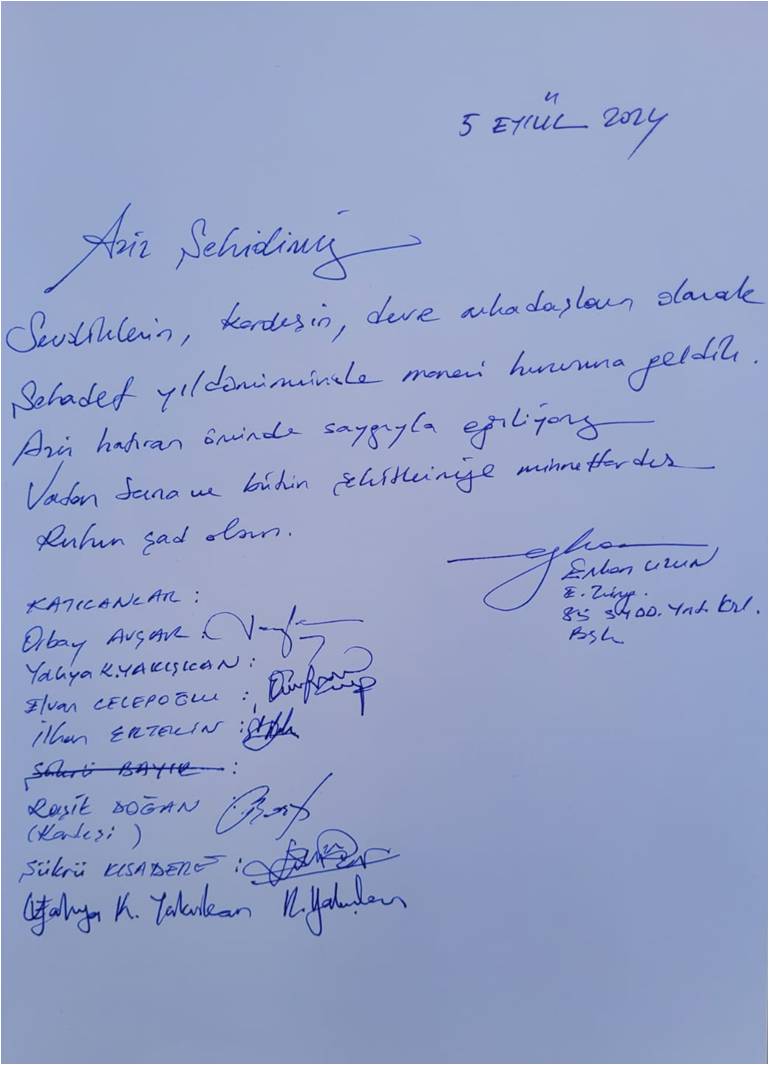 5 EYLÜL 2024
Aziz Şehidimiz
Sevdiklerin, kardeşin, devre arkadaşların olarak
Şehadet yıldönümünde manevi huzuruna geldik.
Aziz hatıran önünde saygıyla eğiliyoruz
Vatan Sana ve bütün şehitlerimize minnettardır
Ruhun şad olsun.
Erkan UZUN
E. Tümg.
Bşk
KATILANLAR :
Orbay AVŞAR :
Yahya K. YAKIŞKAN :
Elvan CELEPOĞLU :
İlhan ERTEKİN :
Şükrü BAYIR :
Raşit DOĞAN
(Kardeşi )
Şükrü KISADERE :
Yahya K. Yakışkan K. Yakışkan